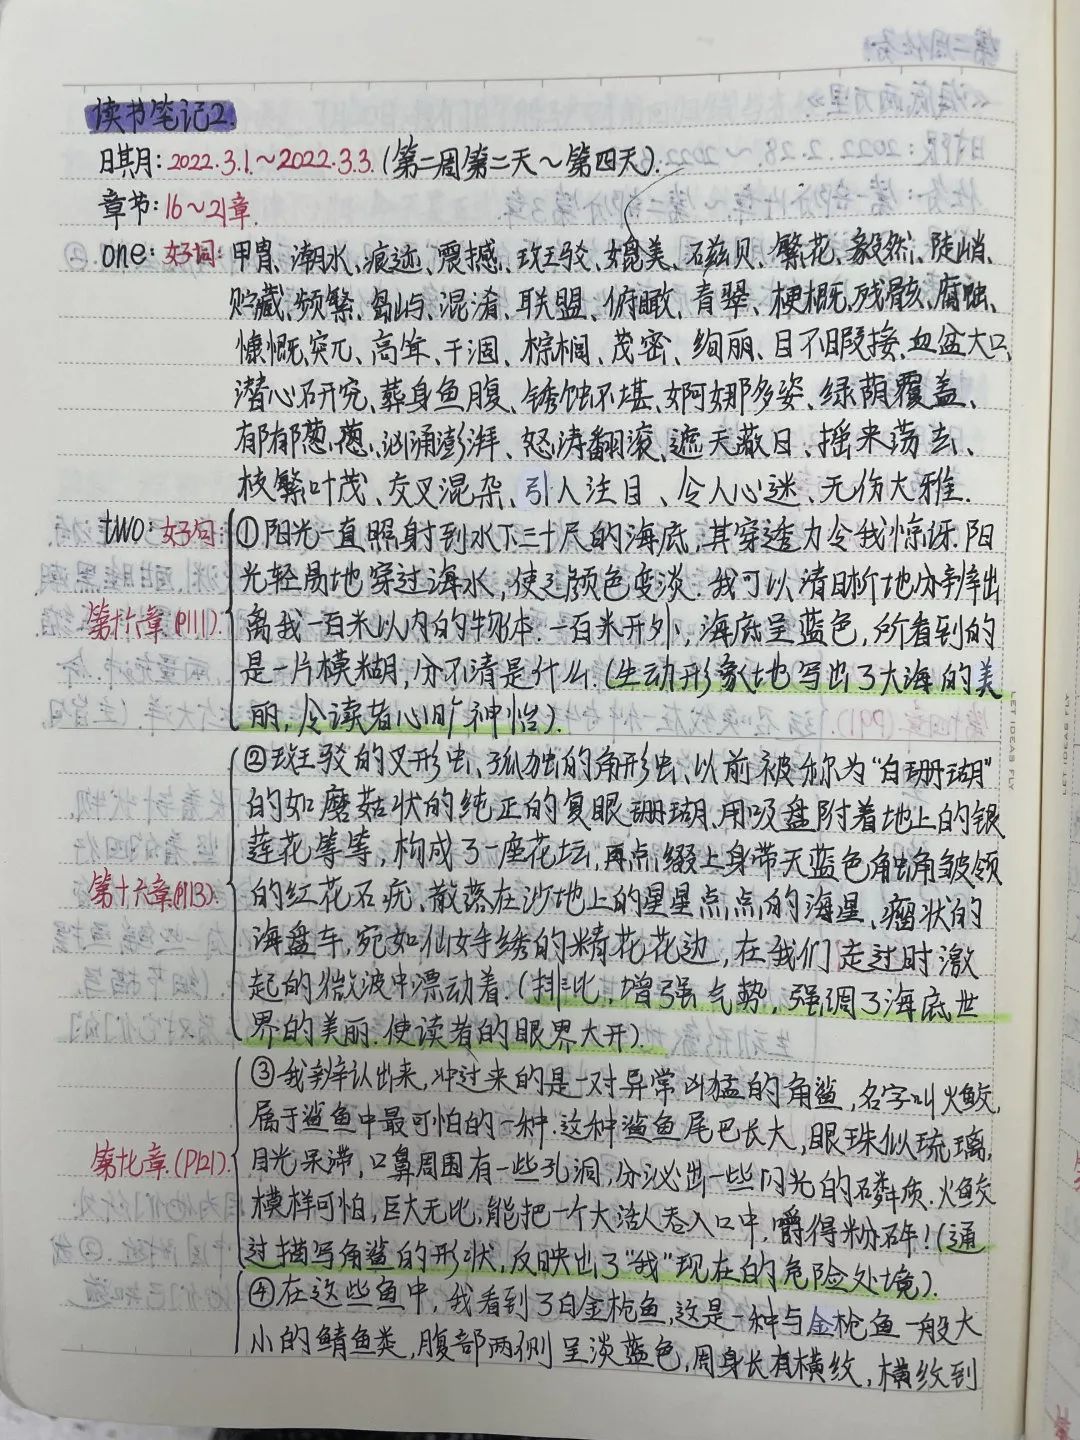 读书笔记2.
日期: 2022.3.1.~2022.3.3. (第二周第二天~第四天).
章节: 16~21章.
one: 好词: 甲胄、潮水、痕迹、震撼、斑驳、媲美、磁贝、繁花、毅然、陡峭、
贮藏、频繁、岛屿、混淆、联盟、俯瞰、青翠、梗概、残骸、腐蚀、
慷慨、突兀、高耸、干涸、棕榈、茂密、绚丽、目不暇接、血盆大口、
潜心研究、葬身鱼腹、锈蚀不堪、婀娜多姿、绿荫覆盖、
郁郁葱葱、汹涌澎湃、怒涛翻滚、遮天蔽日、摇来荡去、
枝繁叶茂、交叉混杂、引人注目、令人心迷、无伤大雅.
two: 好句: ①阳光一直照射到水下三十尺的海底,其穿透力令我惊讶.阳
光轻易地穿过海水,使之颜色变淡.我可以清晰地分辨出
第十六章(P111). 离我一百米以内的物体.一百米开外,海底呈蓝色,所看到的
是一片模糊,分不清是什么.(生动形象地写出了大海的美
丽,令读者心旷神怡).
②斑驳的叉形虫、孤独的角形虫、以前被称为“白珊瑚”
的如蘑菇状的纯正的复眼珊瑚、用吸盘附着地上的银
莲花等等,构成了一座花坛,再点缀上身带天蓝色触角皱领
第十六章(P113). 的红花石疣、散落在沙地上的星星点点的海星、瘤状的
海盘车,宛如仙女手绣的精花花边,在我们走过时激
起的微波中漂动着.(排比,增强气势,强调了海底世
界的美丽.使读者的眼界大开).
③我辨认出来,冲过来的是一对异常凶猛的角鲨,名字叫火鲛,
属于鲨鱼中最可怕的一种.这种鲨鱼尾巴长大,眼珠似琉璃,
第十七章.(P121). 目光呆滞,口鼻周围有一些孔洞,分泌出一些闪光的磷质.火鲛
模样可怕,巨大无比,能把一个大活人卷入口中,嚼得粉碎!(通
过描写角鲨的形状,反映出了“我”现在的危险处境).
④在这些鱼中,我看到了白金枪鱼,这是一种与金枪鱼一般大
小的鲭鱼类,腹部两侧呈淡蓝色,周身长有横纹,横纹到
LET IDEAS FLY